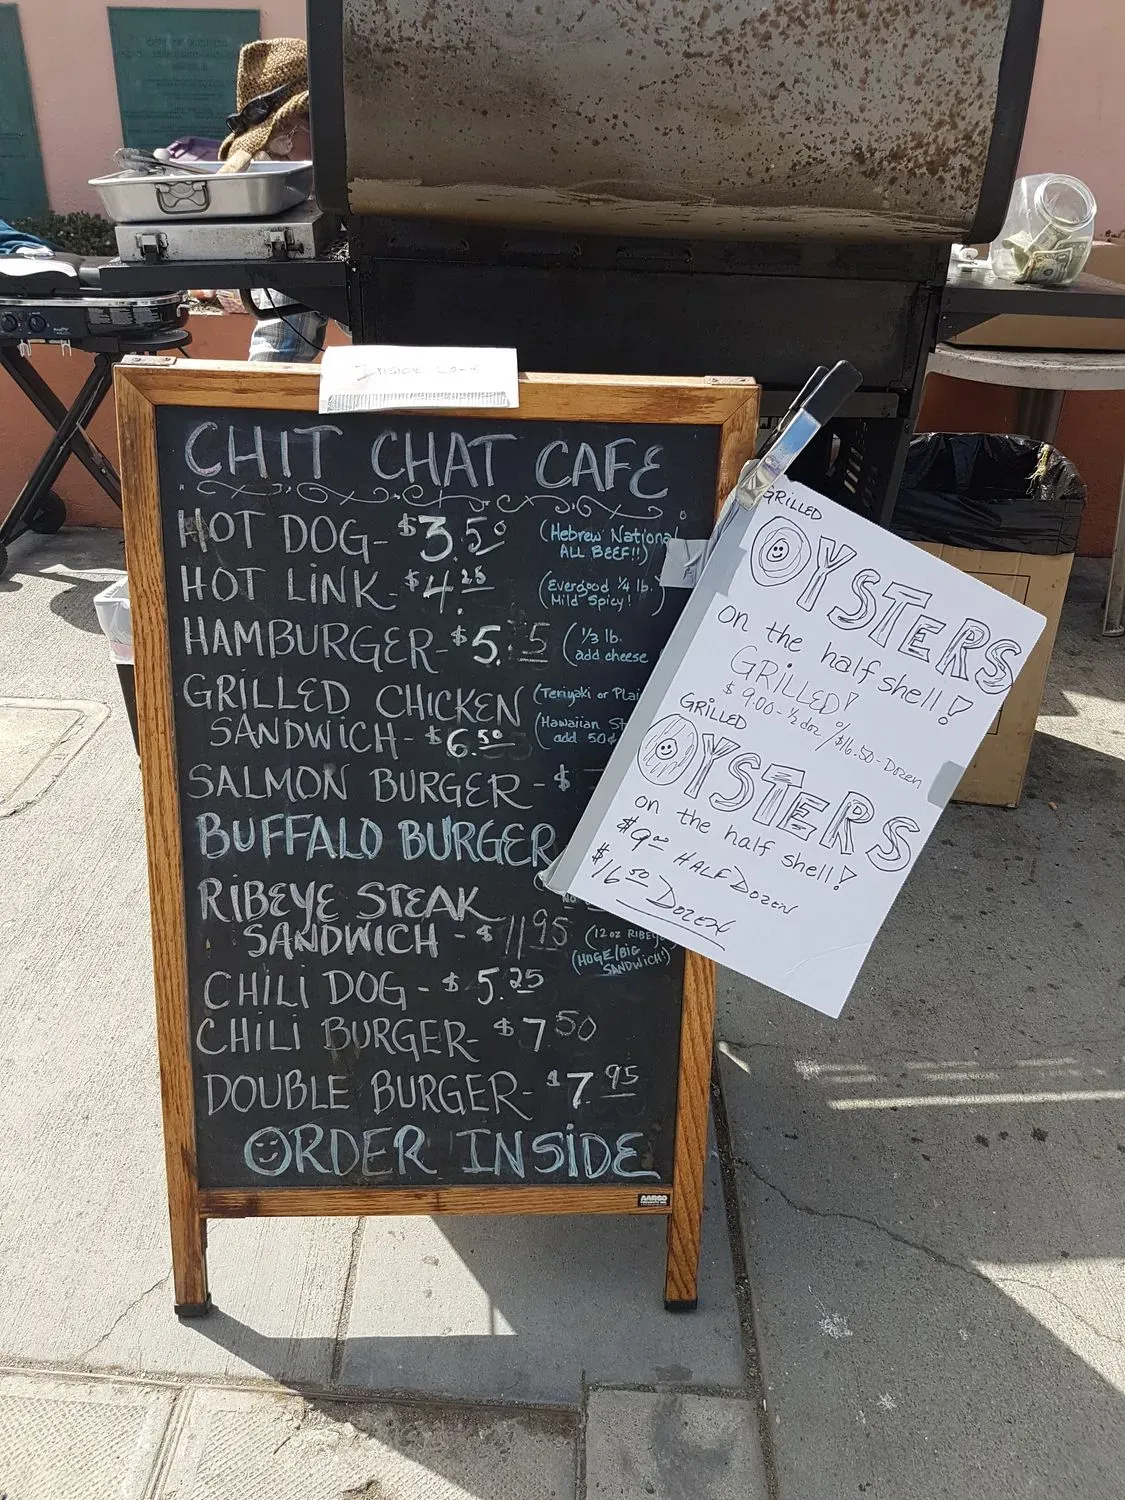 CHIT CHAT CAFE
HOT DOG- $3.50 (Hebrew National
ALL BEEF!!)
HOT LINK- $4.25 (Evergood ¼ lb.
Mild Spicy!
HAMBURGER- $5. 5 (⅓ lb.
add cheese
GRILLED CHICKEN (Teriyaki or Plai
SANDWICH- $6.50 (Hawaiian St
add 50¢
SALMON BURGER- $
BUFFALO BURGER
NO
RIBEYE STEAK
SANDWICH - $11.95 (12oz RIBEYE
(HUGE/BIG
SANDWICH!)
CHILI DOG - $5.25
CHILI BURGER- $7.50
DOUBLE BURGER- $7.95
ORDER INSIDE
GRILLED
OYSTERS
on the half shell!
GRILLED!
$9.00-½doz/$16.50-Dozen
GRILLED
OYSTERS
on the half shell!
$9.00 HALF DOZEN
$16.50 DOZEN